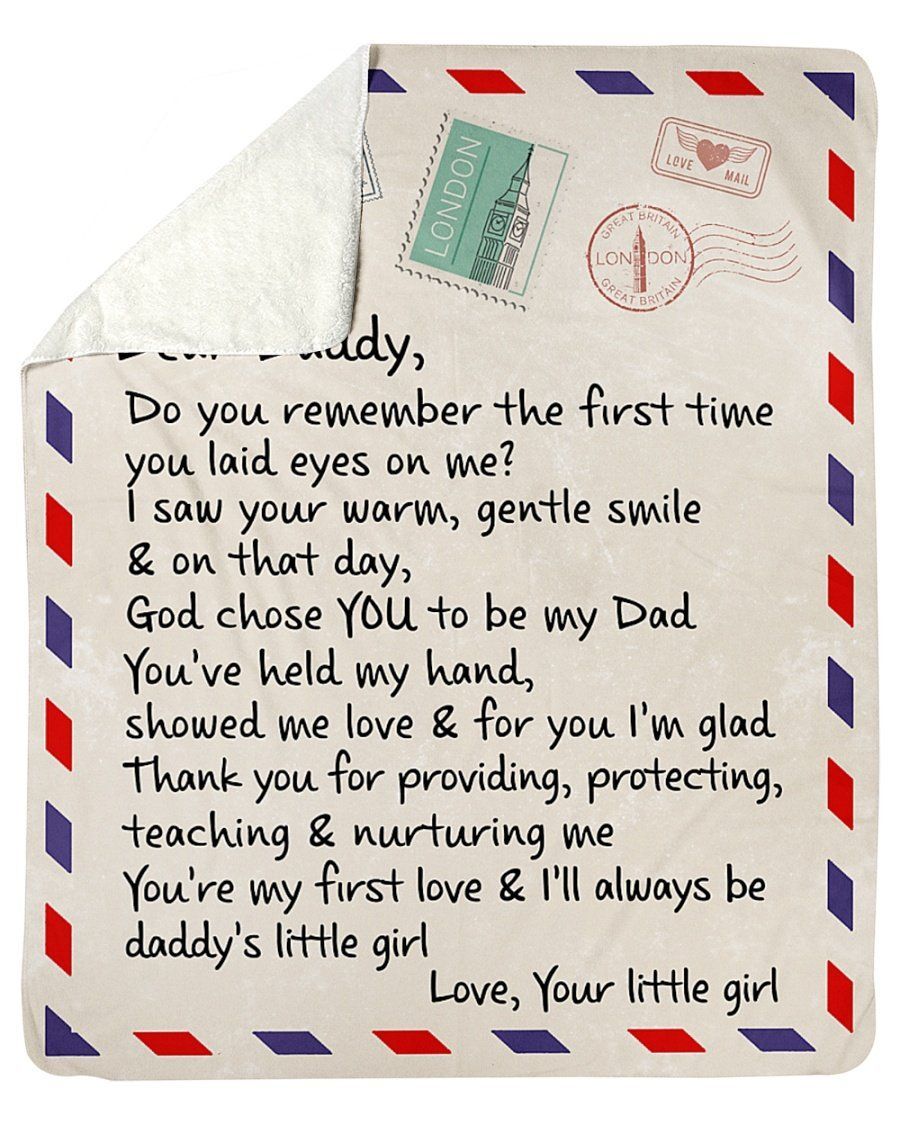 LONDON
LOVE MAIL
GREAT BRITAIN
LONDON
GREAT BRITAIN
Daddy,
Do you remember the first time
you laid eyes on me?
I saw your warm, gentle smile
& on that day,
God chose YOU to be my Dad
You've held my hand,
showed me love & for you I'm glad
Thank you for providing, protecting,
teaching & nurturing me
You're my first love & I'll always be
daddy's little girl
Love, Your little girl